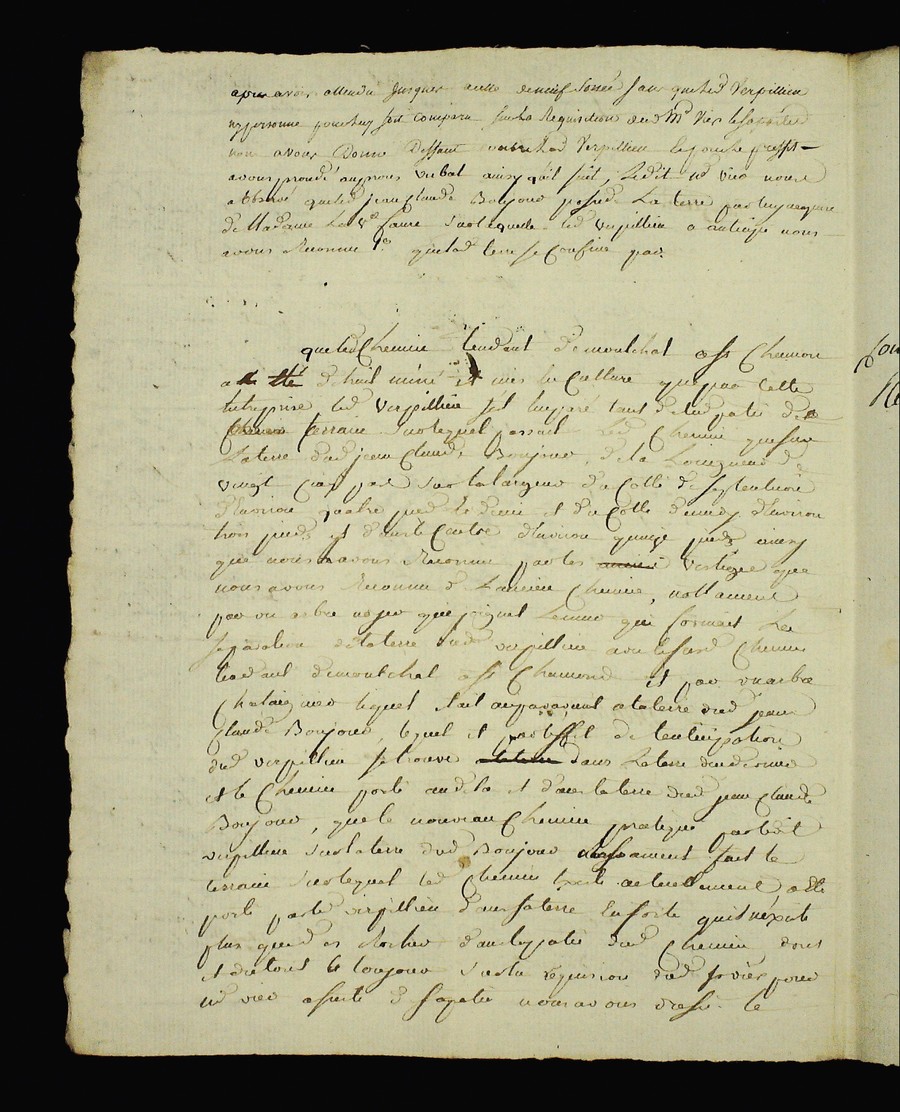 apres avoir attendu jusques a celle de neuf sonnée sans que led Verpillieu
ny personne pour luy soit comparu sur la Requisition dud Me Vier
nous avons donné deffaut contre led Verpillieu
avons procedé au proces verbal ainsy qu'il suit, Ledit me vier nous a
observé que led jean Claude Boujour possede La terre
de Madame La Ve faure sur laquelle led verpillieu a anticipé nous
avons Reconnu 1o que lad terre se Confine par
que led Chemin tendant de montchal a St Chamond
a été detruit miné et mis en Culture que par cette
entreprise led verpillieu s'est emparé tant de lad partie de
terrain sur lequel passoit led Chemin que sur
La terre dud jean Claude Boujour, de la Longueur de
vingt Cinq pas sur la largeur du Cotté de septentrion
d'environ quatre pieds et du Cotté de midy d'environ
trois pieds et dans le Centre d'environ quinze pieds ainsy
que nous avons Reconnu par les vestiges que
nous avons Reconnu de L'ancien Chemin, nottament
par un arbre noyer que joignet Le mur qui formait La
separation de la terre dud verpillieu avec le susd Chemin
tendant de montchal a St Chamond et par un arbre
Chataignier lequel etait auparavant a la terre dud jean
Claude Boujour, lequel et par l'effet de l'anticipation
dud verpillieu se trouve dans La terre de ce dernier
et le Chemin porté au dela et dans la terre dud jean Claude
Boujour, que le nouveau Chemin pratiqué par ledit
verpillieu sur la terre dud Boujour
terrain sur lequel led Chemin Existe actuellement a été
porté par led verpillieu dans sa terre En sorte qu'il n'existe
plus que des Rocher dans la partie dud Chemin dont
et du tout toujour sur la réquision dud Sr viér pour
me vier assisté de sa partie nous avons dressé le